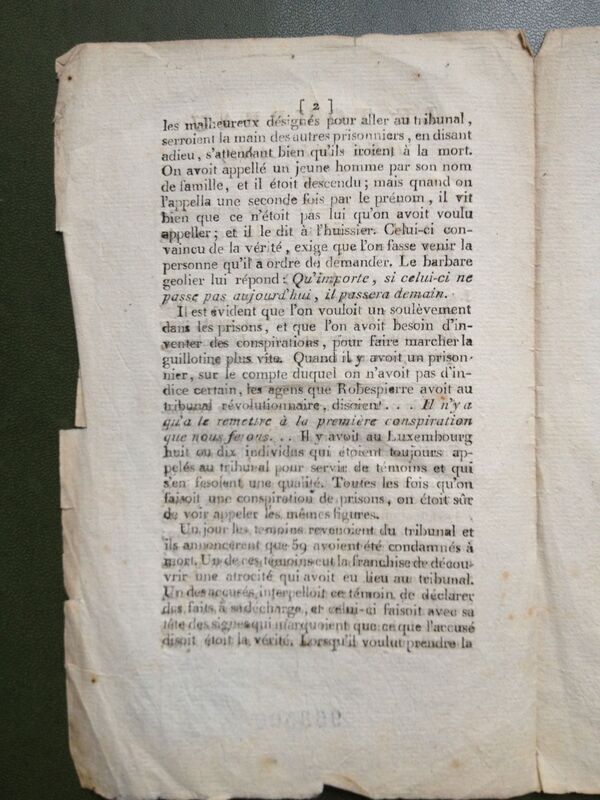 [ 2 ]
les malheureux désignés pour aller au tribunal,
serroient la main des autres prisonniers, en disant
adieu, s'attendant bien qu'ils iroient à la mort.
On avoit appellé un jeune homme par son nom
de famille, et il étoit descendu; mais quand on
l'appella une seconde fois par le prénom, il vit
bien que ce n'étoit pas lui qu'on avoit voulu
appeller; et il le dit à l'huissier. Celui-ci con-
vaincu de la vérité, exige que l'on fasse venir la
personne qu'il a ordre de demander. Le barbare
geolier lui répond: Qu'importe, si celui-ci ne
passe pas aujourd'hui, il passera demain.
Il est évident que l'on vouloit un soulèvement
dans les prisons, et que l'on avoit besoin d'in-
venter des conspirations, pour faire marcher la
guillotine plus vite. Quand il y avoit un prison-
nier, sur le compte duquel on n'avoit pas d'in-
dice certain, les agens que Robespierre avoit au
tribunal révolutionnaire, disoient... Il n'y a
qu'a le remettre à la première conspiration
que nous ferons... Il y avoit au Luxembourg
huit ou dix individus qui étoient toujours ap-
pelés au tribunal pour servir de témoins et qui
s'en fesoient une qualité. Toutes les fois qu'on
faisoit une conspiration de prisons, on étoit sûr
de voir appeler les mêmes figures.
Un jour les temoins revenoient du tribunal et
ils annoncèrent que 59 avoient été condamnés à
mort. Un de ces témoins eut la franchise de décou-
vrir une atrocité qui avoit eu lieu au tribunal.
Un des accusés interpelloit ce témoin de déclarer
des faits à sa décharge, et celui-ci faisoit avec sa
tête des signes qui marquoient que ce que l'accusé
disoit étoit la vérité. Lorsqu'il voulut prendre la